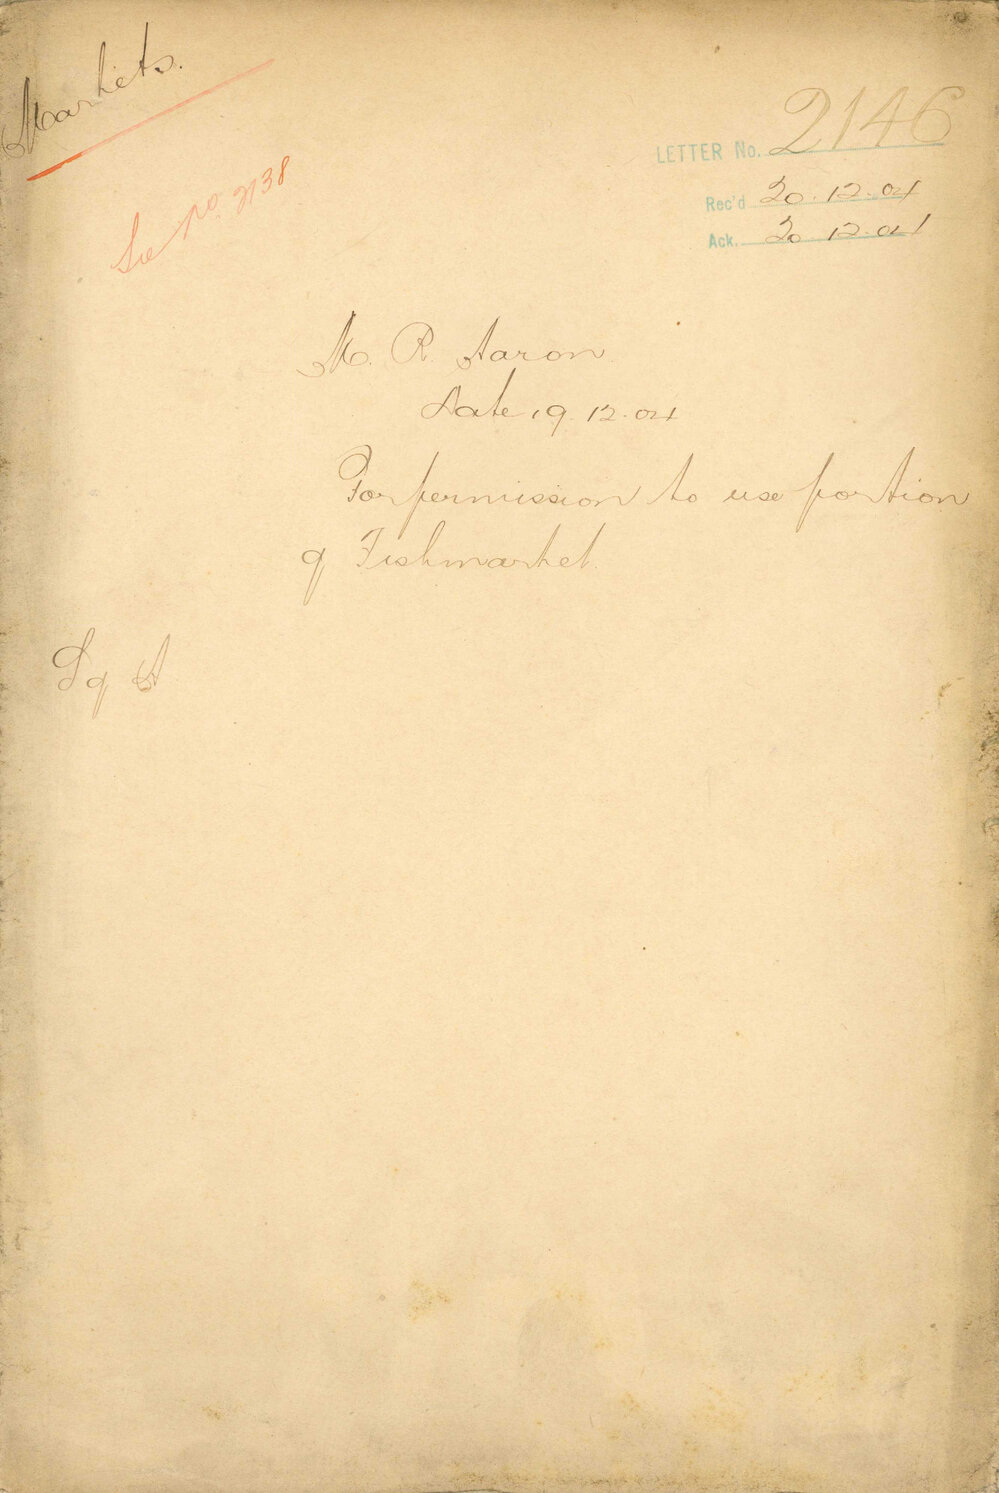 Markets.
See no. 2138
LETTER No. 2146
Rec'd 20.12.04
Ack. 20.12.04
M. R. Aaron
Date 19.12.04
For permission to use portion
of Fishmarket.